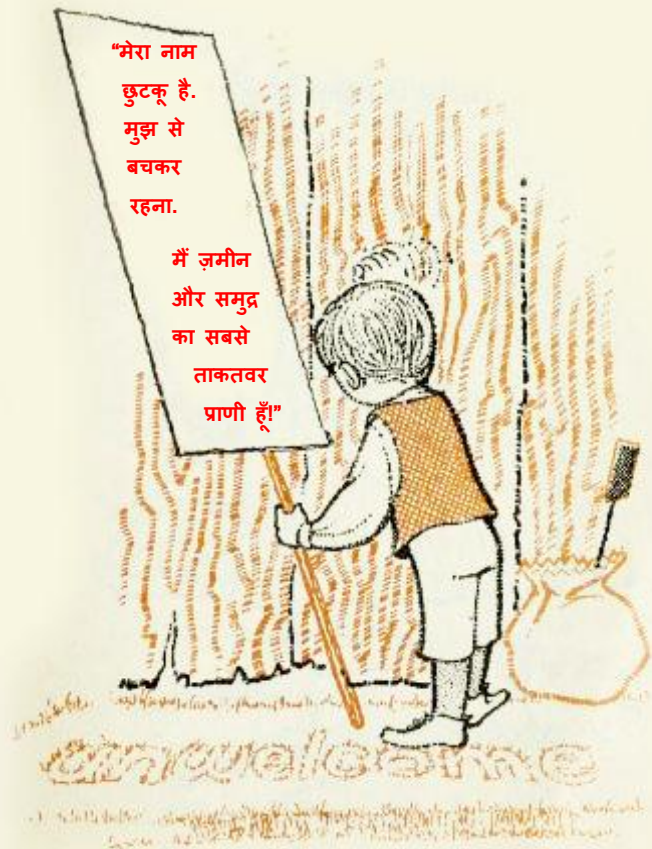 “मेरा नाम
छुटकू है.
मुझ से
बचकर
रहना.
मैं ज़मीन
और समुद्र
का सबसे
ताकतवर
प्राणी हूँ!”
unwelcome